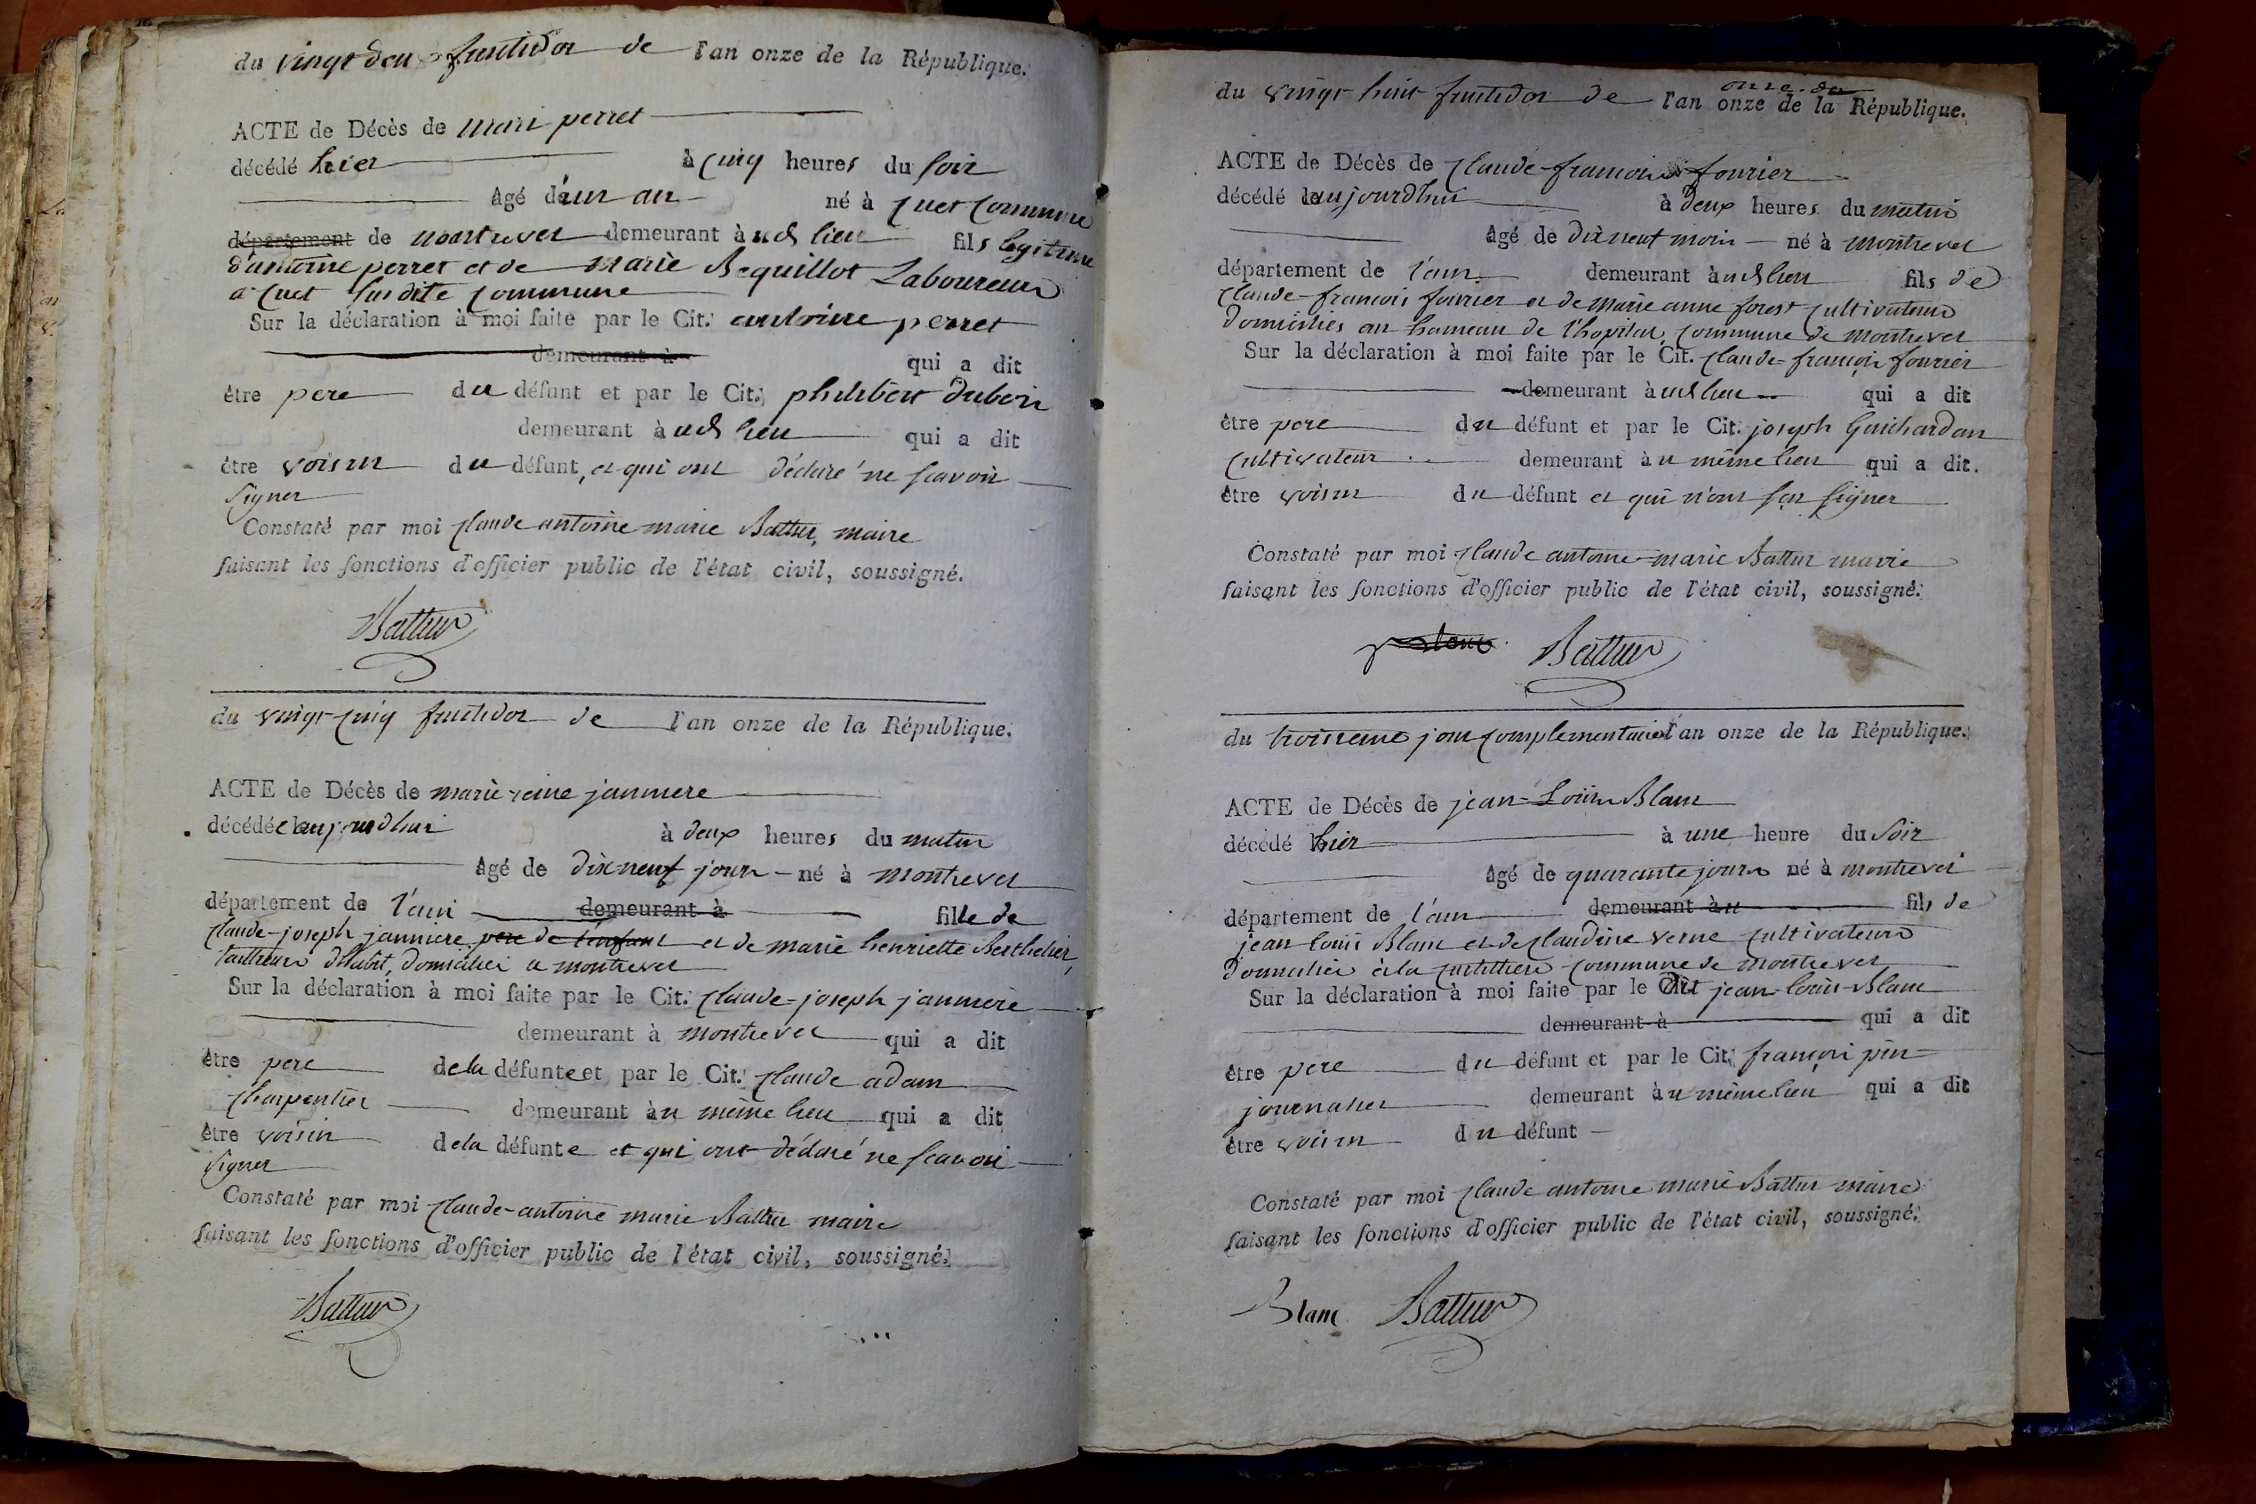 du vingt deu fructidor de l'an onze de la République.
ACTE de Décès de Mari perret
décédé hier à cinq heures du soir
âgé d'un an né à Cuet Commune
département de montrevel demeurant à ud lieu fils legitime
d'antoine perret et de Marie Bequillot Laboureurs
a Cuet susdite Commune
Sur la déclaration à moi faite par le Cit. antoine perret
demeurant à qui a dit
être pere du défunt et par le Cit. philibert dubois
demeurant à ud lieu qui a dit
être voisin du défunt, et qui ont déclaré ne scavoir
signer
Constaté par moi Claude antoine marie Battur, maire
faisant les fonctions d'officier public de l'état civil, soussigné.
Battur
du vingt-cinq fructidor de l'an onze de la République.
ACTE de Décès de marie reine janniere
décédée aujourdhui à deux heures du matin
âgé de dix neuf jours né à montrevel
département de l'ain demeurant à fille de
Claude-joseph janniere pere de l'enfant et de marie henriette Berthelier,
tailleurs d'habit, domiciliés a montrevel
Sur la déclaration à moi faite par le Cit. Claude-joseph janniere
demeurant à montrevel qui a dit
être pere de la défunte et par le Cit. Claude adam
charpentier demeurant àu même lieu qui a dit
être voisin de la défunte et qui ont déclaré ne scavoir
signer
Constaté par moi Claude-antoine marie Battur maire
faisant les fonctions d'officier public de l'état civil, soussigné.
Battur
du vingt huit fructidor de l'an onze de la République.
ACTE de Décès de Claude-francois fourier
décédé aujourdhui à deux heures du matin
âgé de dix neuf mois né à montrevel
département de l'ain demeurant à ud lieu fils de
Claude-francois fourier et de marie anne forest Cultivateurs
domiciliés au hameau de l'hopital, Commune de montrevel
Sur la déclaration à moi faite par le Cit. Claude-françois fourier
demeurant à ud lieu qui a dit
être pere du défunt et par le Cit. joseph Guichardan
Cultivateur demeurant àu même lieu qui a dit.
être voisin du défunt et qui n'ont sçu signer
Constaté par moi Claude antoine-marie Battur maire
faisant les fonctions d'officier public de l'état civil, soussigné.
Battur
du troisieme jour Complementaire l'an onze de la République.
ACTE de Décès de jean-Louis Blanc
décédé hier à une heure du soir
âgé de quarante jours né à montrevel
département de l'ain demeurant àu fils de
jean louis Blanc et de Claudine verne Cultivateurs
domiciliés à la Commune de montrevel
Sur la déclaration à moi faite par le dit jean-louis-Blanc
demeurant à qui a dit
être pere du défunt et par le Cit. françois pin
journalier demeurant àu même lieu qui a dit
être voisin du défunt
Constaté par moi Claude antoine marie Battur maire
faisant les fonctions d'officier public de l'état civil, soussigné.
Blanc Battur